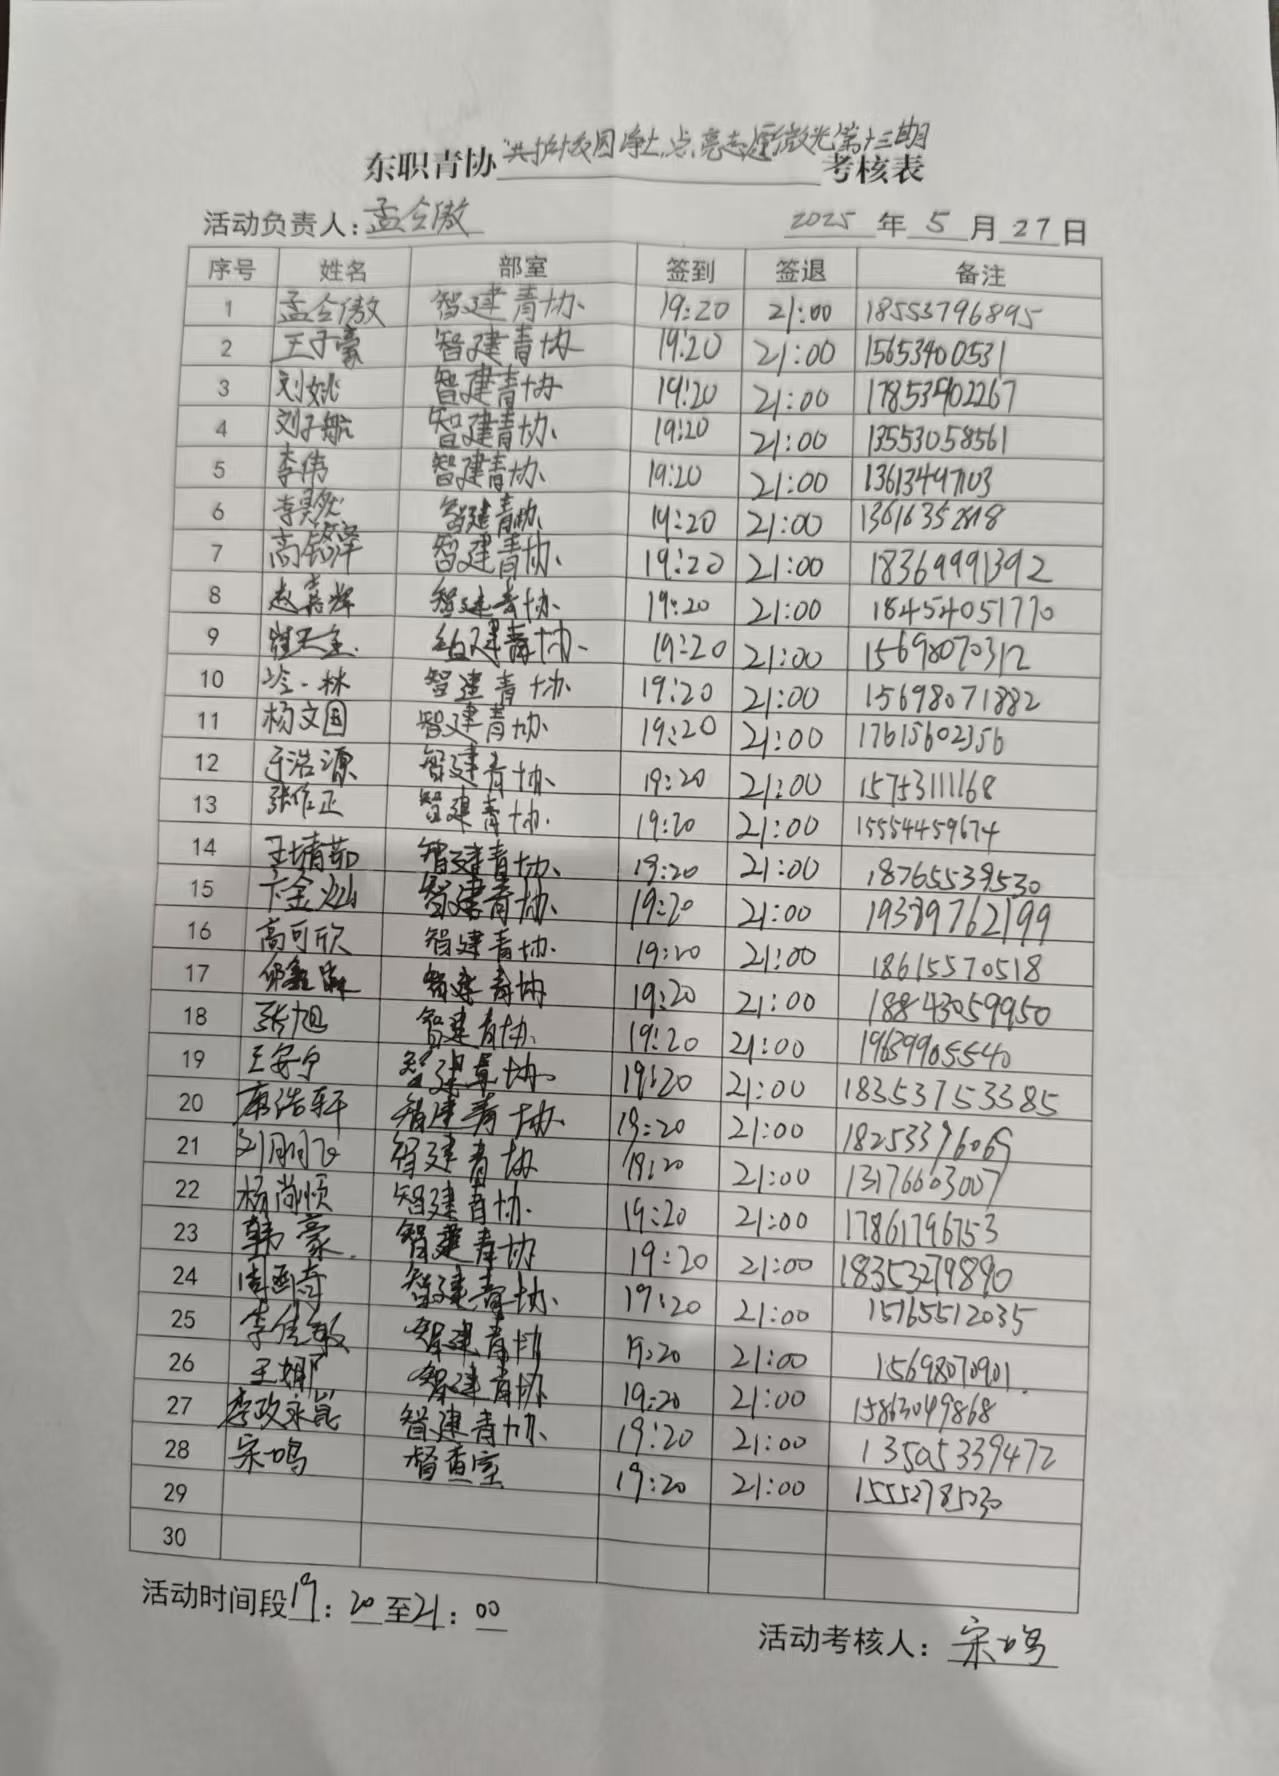 洪护校园净土,点亮志愿微光第十三期
东职青协 考核表
活动负责人:孟令傲 2025年5月27日
序号 姓名 部室 签到 签退 备注
1 孟令傲 智建青协 19:20 21:00 18553796895
2 王子豪 智建青协 19:20 21:00 15653400531
3 刘姚 智建青协 19:20 21:00 17853402267
4 刘子航 智建青协 19:20 21:00 13553058561
5 李伟 智建青协 19:20 21:00 13613447103
6 李昊然 智建青协 19:20 21:00
7 高铭泽 智建青协 19:20 21:00 18369991392
8 赵嘉辉 智建青协 19:20 21:00 18454051770
9 智建青协 19:20 21:00 15698070312
10 冷林 智建青协 19:20 21:00 15698071882
11 杨文国 智建青协 19:20 21:00 17615602356
12 于浩源 智建青协 19:20 21:00 15753111168
13 张作正 智建青协 19:20 21:00 15554459674
14 王靖茹 智建青协 19:20 21:00 18765539530
15 卞金灿 智建青协 19:20 21:00 19389762199
16 高可欣 智建青协 19:20 21:00 18615570518
17 智建青协 19:20 21:00 18843059950
18 张旭 智建青协 19:20 21:00 19639905540
19 王安宁 智建青协 19:20 21:00 18353753385
20 唐浩轩 智建青协 19:20 21:00 18253396069
21 刘刚飞 智建青协 19:20 21:00 13176603007
22 杨尚顺 智建青协 19:20 21:00 17861796753
23 韩豪 智建青协 19:20 21:00 18353279890
24 智建青协 19:20 21:00 15165512035
25 李佳敏 智建青协 19:20 21:00 15698070901
26 王娜 智建青协 19:20 21:00 15863049868
27 李政永嵩 智建青协 19:20 21:00 13505339472
28 宋鸣 督查室 19:20 21:00 15552785030
29
30
活动时间段19:20至21:00
活动考核人:宋鸣